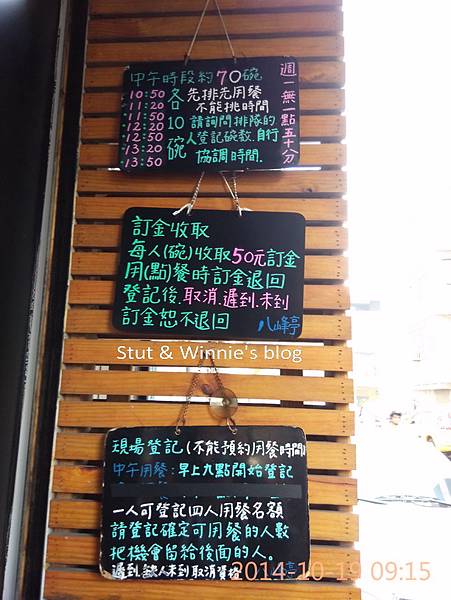 中午時段約70碗
10:50
11:20
11:50
12:20
12:50
13:20
13:50
各10碗
先排先用餐
不能挑時間
請詢問排隊的
人登記碗數.自行
協調時間.
週一無一點五十分
訂金收取
每人(碗)收取50元訂金
用(點)餐時訂金退回
登記後.取消.遲到.未到
訂金恕不退回
八峰亭
Stut & Winnie's blog
現場登記(不能預約用餐時間)
中午用餐:早上九點開始登記
一人可登記四人用餐名額
請登記確定可用餐的人數
把機會留給後面的人。
遲到.缺人未到取消資格
亭
2014-10-19 09:15